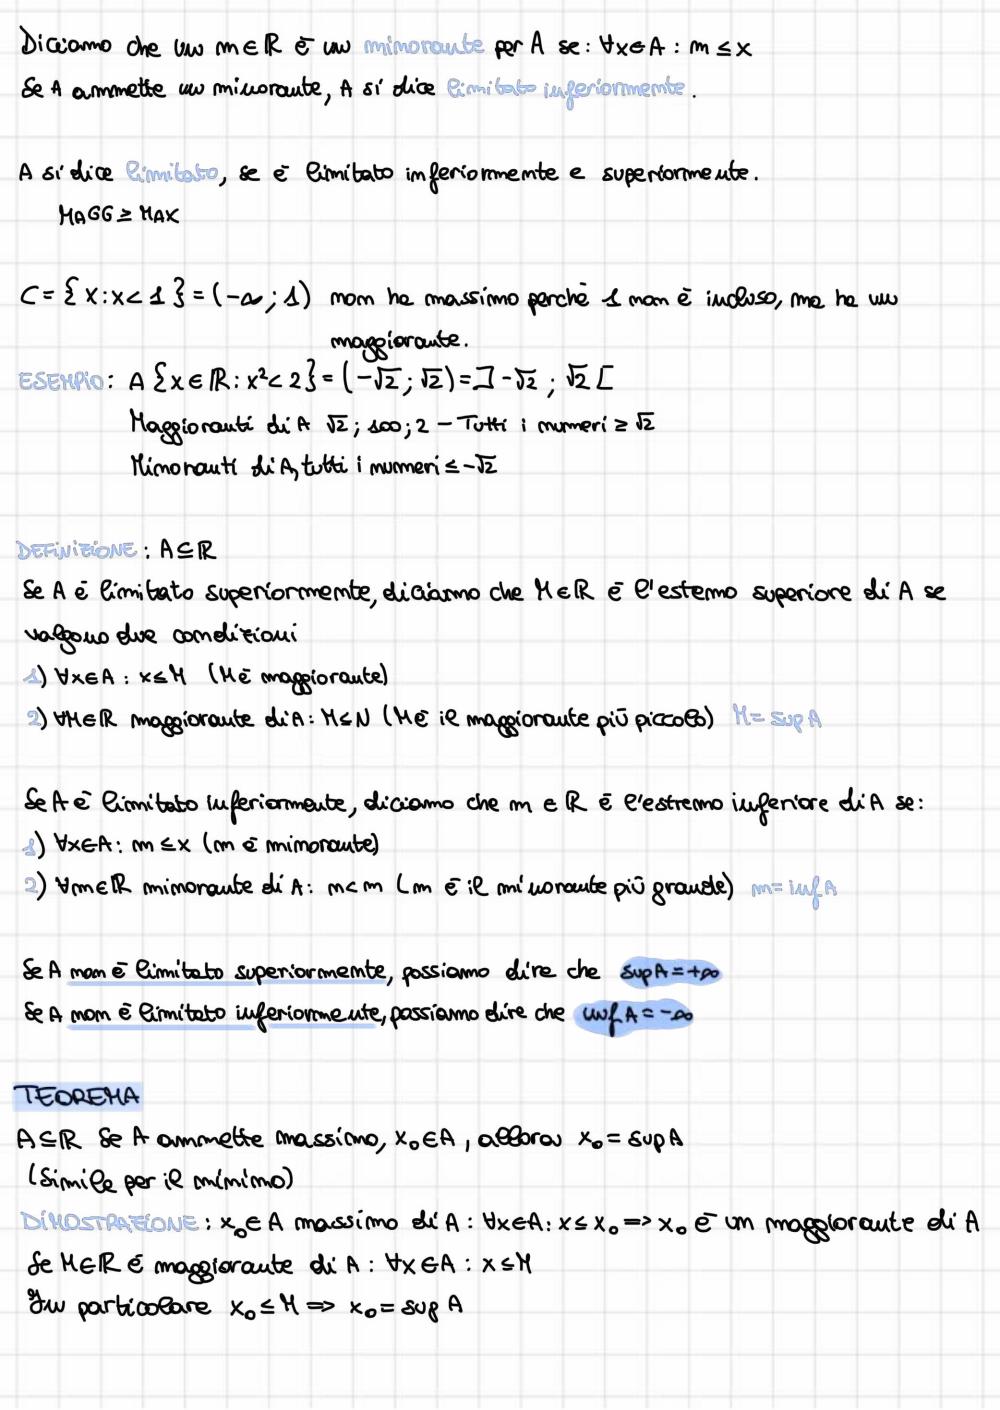 Diciamo che un m∈ℝ è un minorante per A se: ∀x∈A : m ≤ x
Se A ammette un minorante, A si dice limitato inferiormente.
A si dice limitato, se è limitato inferiormente e superiormente.
MAGG ≥ MAX
C = { x : x < 1 } = (-∞ ; 1) non ha massimo perchè 1 non è incluso, ma ha un
maggiorante.
ESEMPIO: A {x∈ℝ : x² < 2} = (-√2 ; √2) = ]-√2 ; √2[
Maggioranti di A √2 ; 100 ; 2 - Tutti i numeri ≥ √2
Minoranti di A, tutti i numeri ≤ -√2
DEFINIZIONE : A⊆ℝ
Se A è limitato superiormente, diciamo che M∈ℝ è l'estemo superiore di A se
valgono due condizioni
1) ∀x∈A : x≤M (M è maggiorante)
2) ∀M∈ℝ maggiorante di A : M≤N (M è il maggiorante più piccolo) M = sup A
Se A è limitato inferiormente, diciamo che m ∈ ℝ è l'estremo inferiore di A se:
1) ∀x∈A : m ≤ x (m è minorante)
2) ∀m∈ℝ minorante di A : n<m (m è il minorante più grande) m = inf A
Se A non è limitato superiormente, possiamo dire che sup A = +∞
Se A non è limitato inferiormente, possiamo dire che inf A = -∞
TEOREMA
A⊆ℝ Se A ammette massimo, x₀∈A , allora x₀ = sup A
(Simile per il minimo)
DIMOSTRAZIONE : x₀∈A massimo di A : ∀x∈A : x ≤ x₀ => x₀ è un maggiorante di A
Se M∈ℝ è maggiorante di A : ∀x∈A : x≤M
In particolare x₀ ≤ M => x₀ = sup A